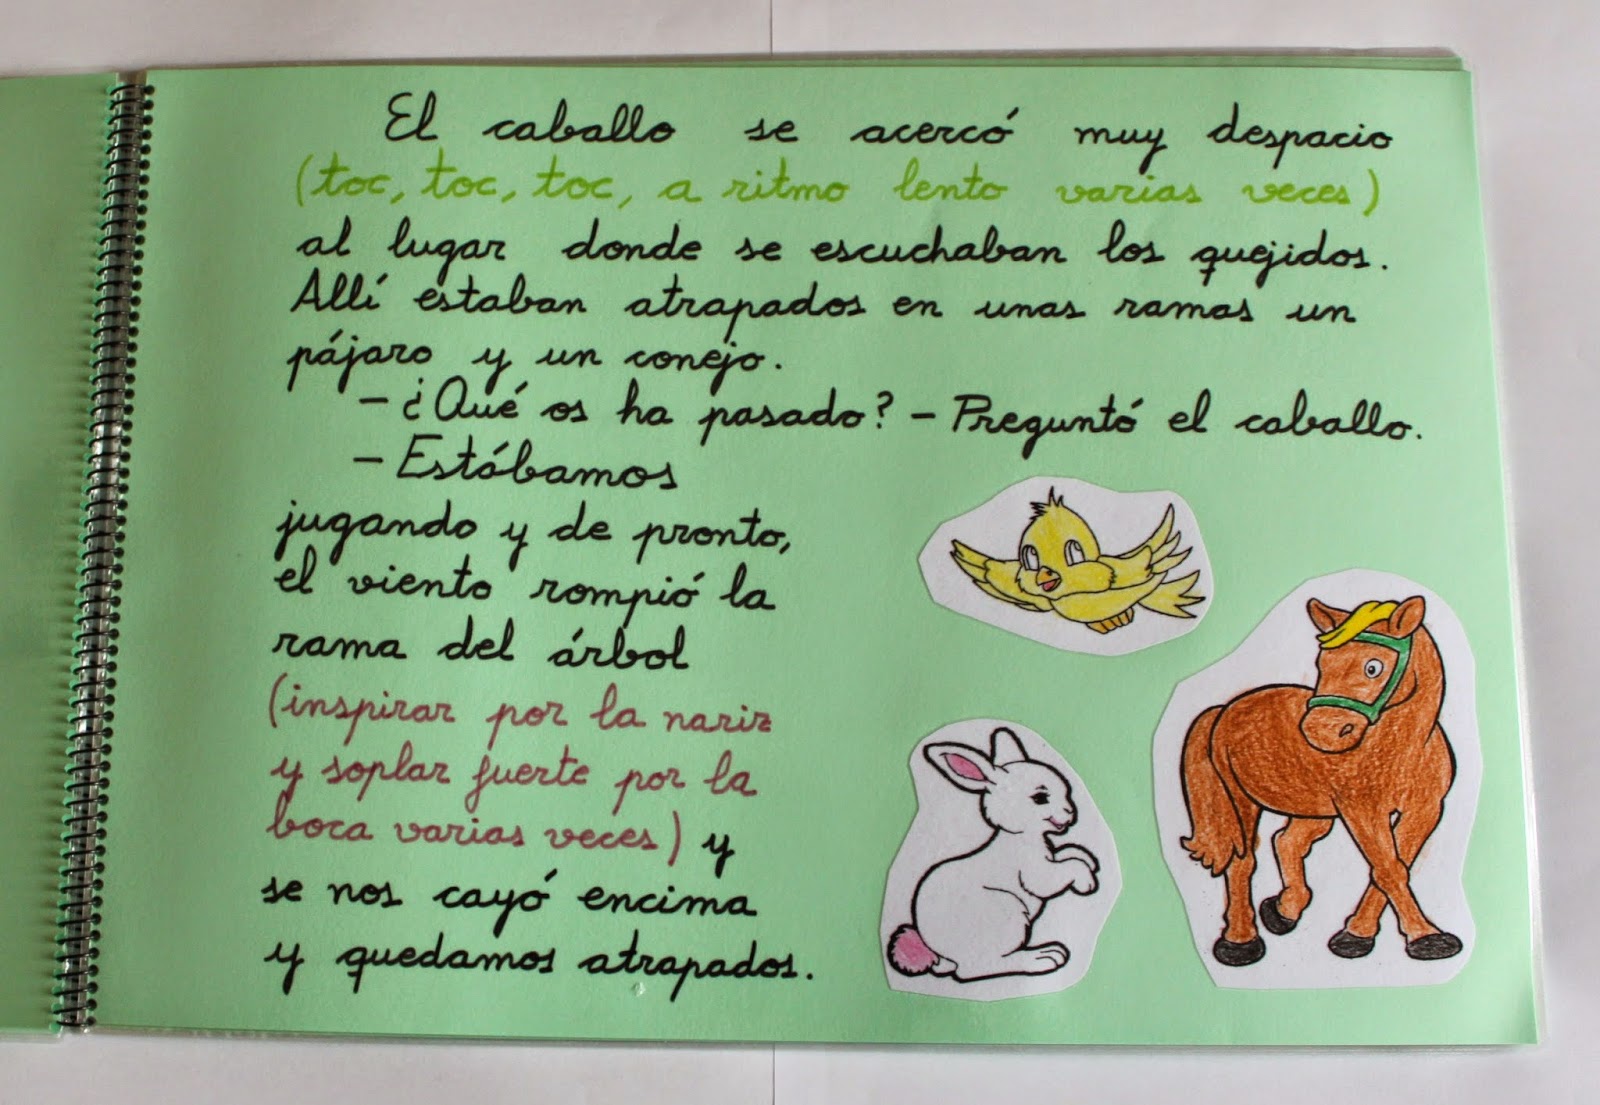 El caballo se acercó muy despacio
(toc, toc, toc, a ritmo lento varias veces)
al lugar donde se escuchaban los quejidos.
Allí estaban atrapados en unas ramas un
pájaro y un conejo.
- ¿Qué os ha pasado? - Preguntó el caballo.
- Estábamos
jugando y de pronto,
el viento rompió la
rama del árbol
(inspirar por la nariz
y soplar fuerte por la
boca varias veces) y
se nos cayó encima
y quedamos atrapados.